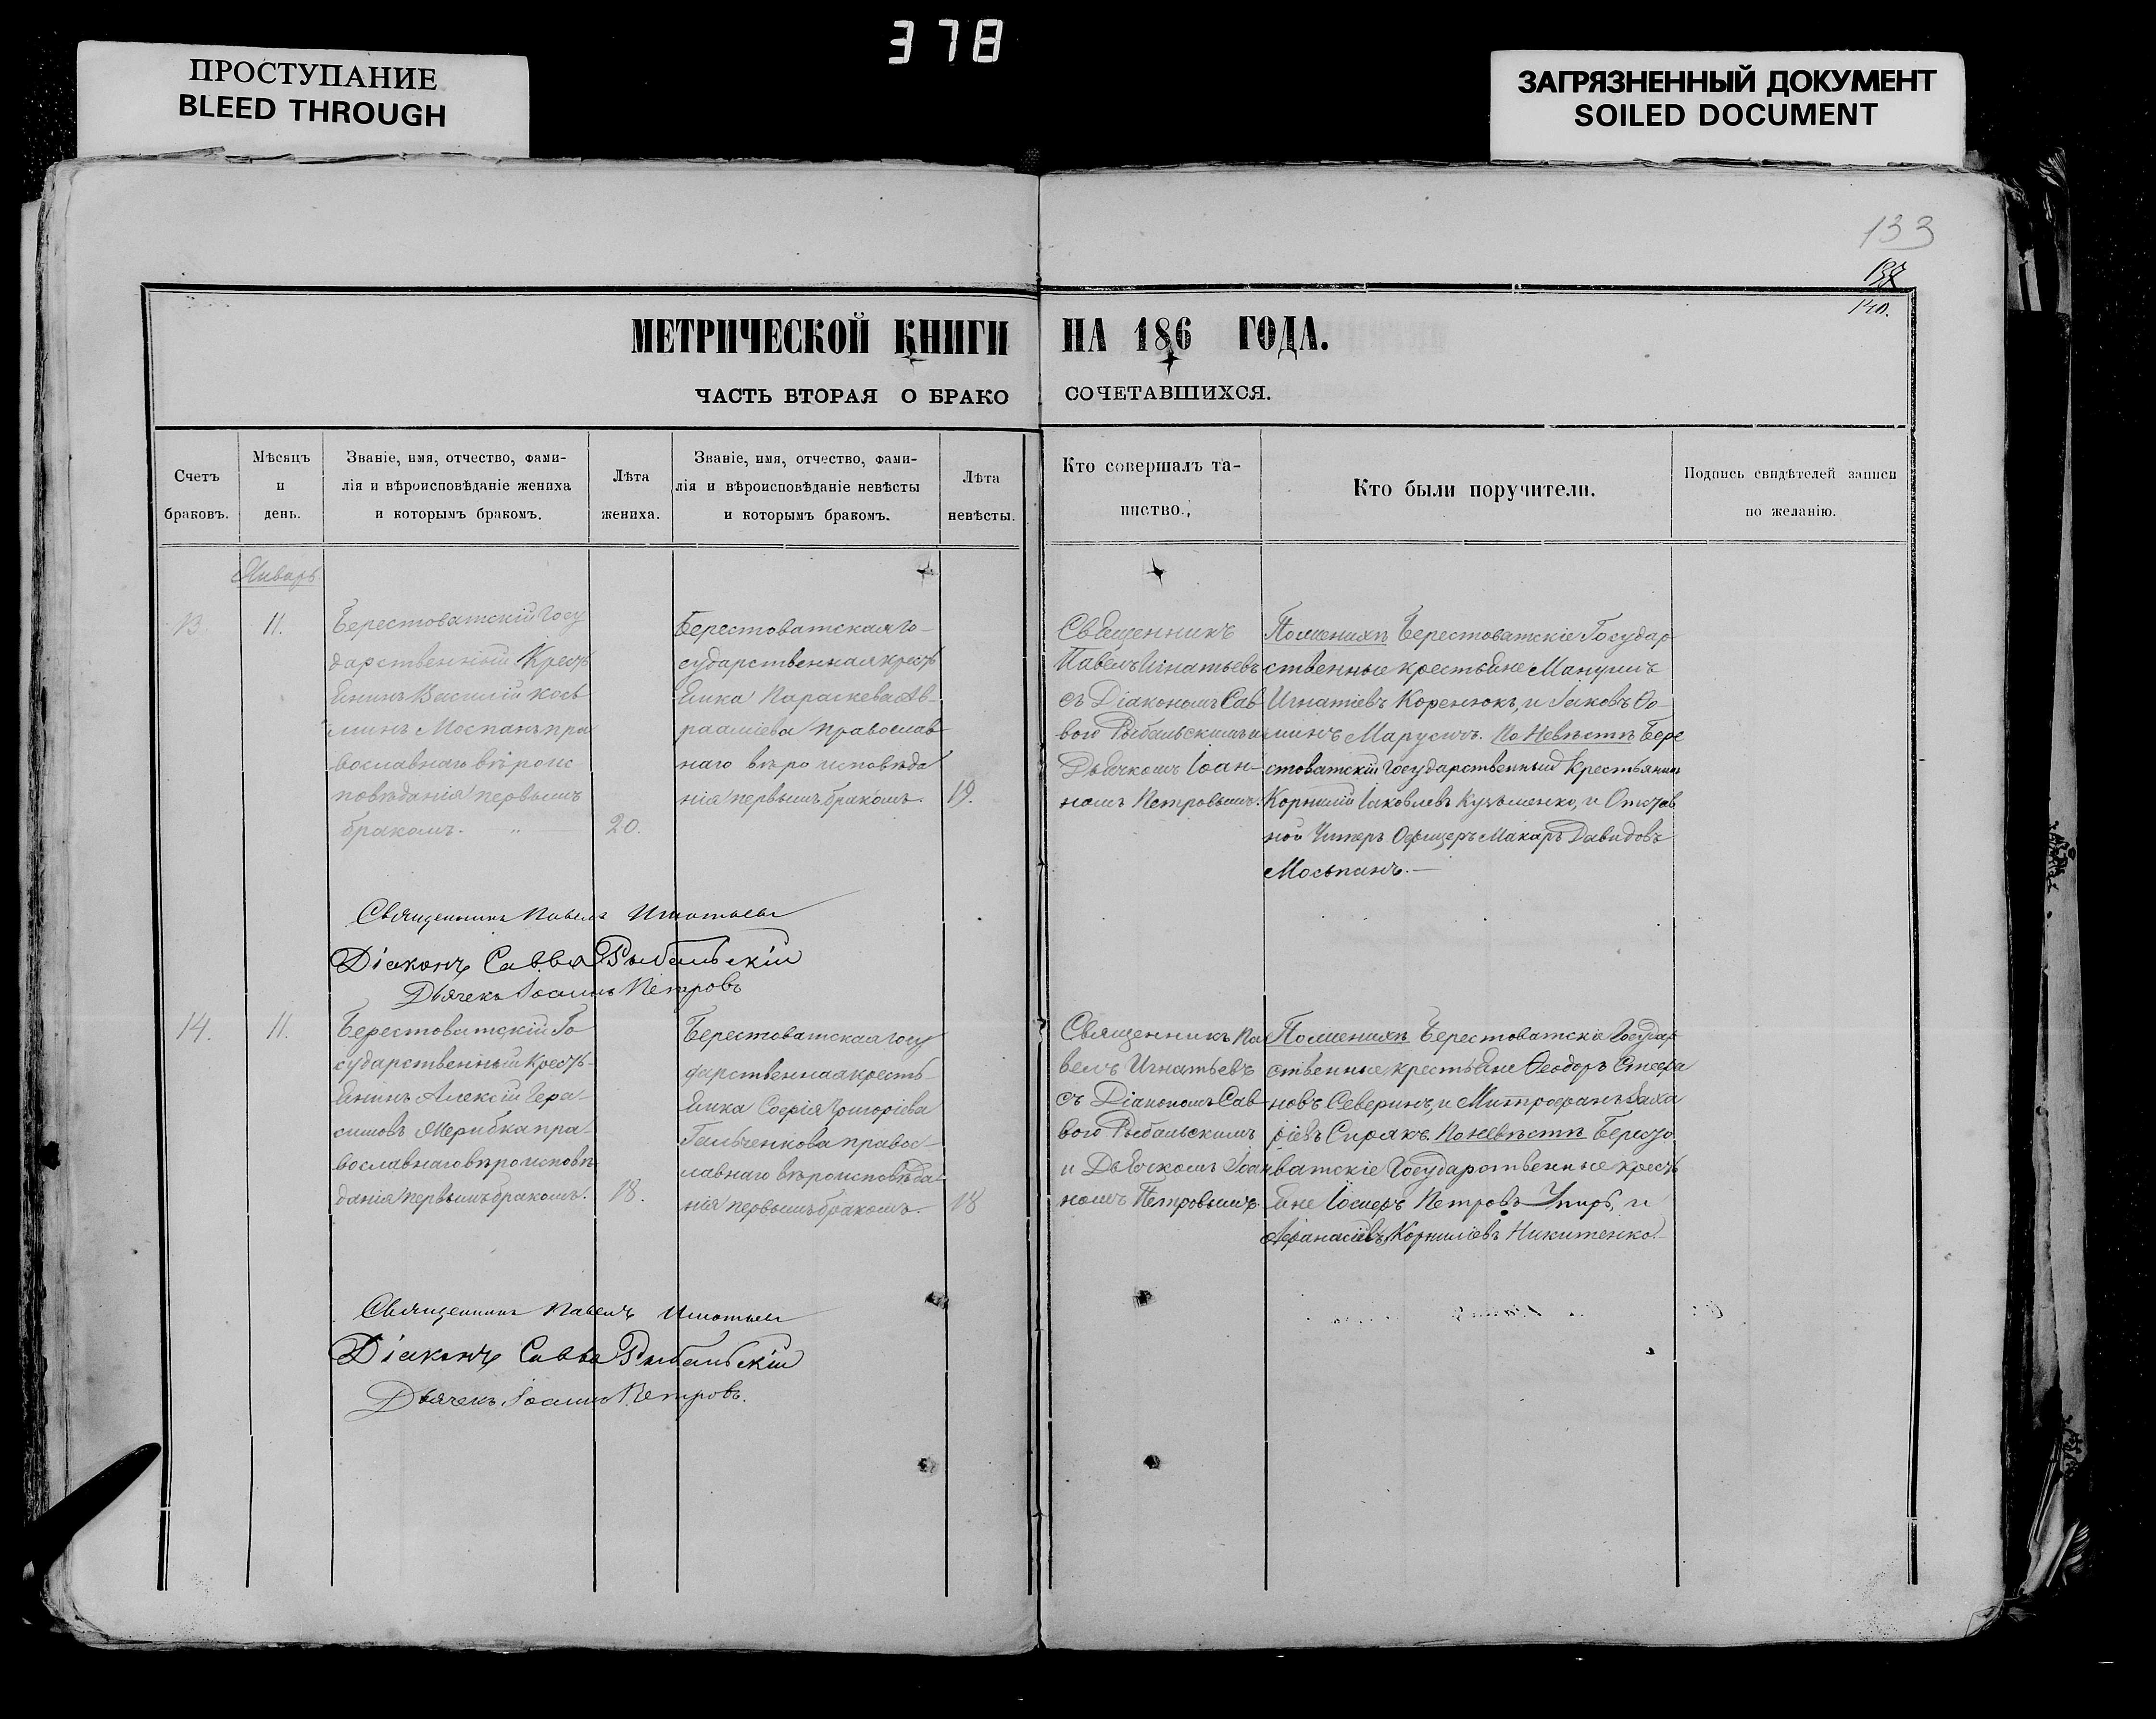 378
ПРОСТУПАНИЕ
BLEED THROUGH
ЗАГРЯЗНЕННЫЙ ДОКУМЕНТ
SOILED DOCUMENT
133
140.
МЕТРИЧЕСКОЙ КНИГИ НА 186 ГОДА.
ЧАСТЬ ВТОРАЯ О БРАКОСОЧЕТАВШИХСЯ.
Счетъ
браковъ.
Мѣсяцъ
и
день.
Званіе, имя, отчество, фами-
лія и вѣроисповѣданіе жениха
и которымъ бракомъ.
Лѣта
жениха.
Званіе, имя, отчество, фами-
лія и вѣроисповѣданіе невѣсты
и которымъ бракомъ.
Лѣта
невѣсты.
Кто совершалъ та-
инство.
Кто были поручители.
Подпись свидѣтелей записи
по желанію.
Январь.
13.
11.
Берестоватскій Госу
дарственный Кресть
янинъ Василій Косъ
минъ Моспанъ пра
вославнаго вѣроис
повѣданія первымъ
бракомъ.
20.
Берестоватская Го-
сударственная кресть
янка Параскева Ав-
рааміева православ
наго вѣроисповѣда
нія первымъ бракомъ.
19.
Священникъ
Павелъ Игнатьевъ
съ Діакономъ Сав
вою Рыбальскимъ и
Дьячкомъ Іоан-
номъ Петровымъ.
По женихѣ Берестоватскіе Государ
ственные крестьяне Мануилъ
Игнатіевъ Коренюкъ, и Іаковъ Ѳо-
минъ Марусичъ. По Невѣстѣ Бере
стоватскій Государственный Крестьянинъ
Корнилій Іаковлевъ Кузьменко, и Отстав
ной Унтеръ Офицеръ Макаръ Давидовъ
Мосьпанъ.
Священникъ Павелъ Игнатьевъ
Діаконъ Савва Рыбальскій
Дьячекъ Іоаннъ Петровъ
14.
11.
Берестоватскій Го
сударственный Кресть-
янинъ Алексій Гера-
симовъ Жерибка пра-
вославнаго вѣроисповѣ
данія первымъ бракомъ.
18.
Берестоватская госу
дарственная кресть-
янка Софія Григоріева
Гальченкова правос-
лавнаго вѣроисповѣда
нія первымъ бракомъ.
18
Священникъ Па
велъ Игнатьевъ
съ Діакономъ Сав
вою Рыбальскимъ
и Дьячкомъ Іоан
номъ Петровымъ.
По женихѣ Берестоватскіе Государ
ственные крестьяне Ѳеодоръ Стефа
новъ Северинъ, и Митрофанъ Заха
ріевъ Сиракъ. По невѣстѣ Бересто
ватскіе Государственные кресть
яне Іосифъ Петровъ Упиръ, и
Афанасій Корниліевъ Никитенко.
Священникъ Павелъ Игнатьевъ
Діаконъ Савва Рыбальскій
Дьячекъ Іоаннъ Петровъ.